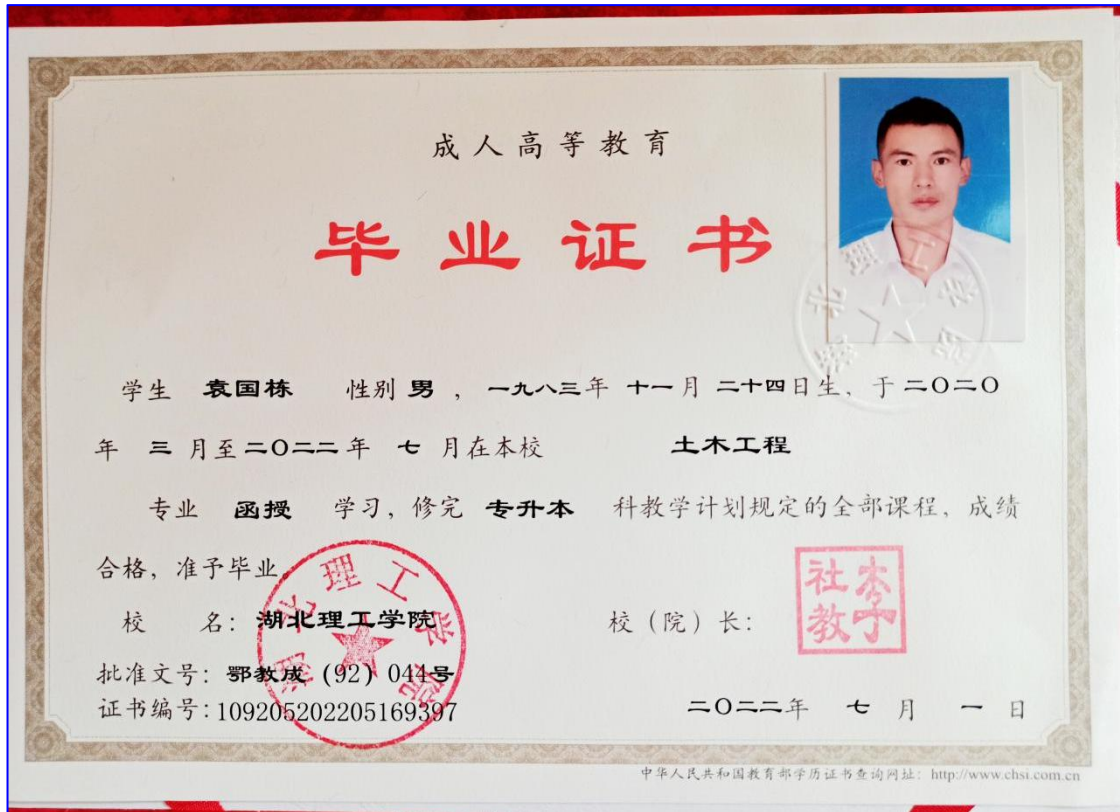 成人高等教育
毕业证书
学生 袁国栋 性别 男 ，一九八三年 十一月 二十四日生，于二〇二〇
年 三 月至二〇二二年 七 月在本校 土木工程
专业 函授 学习，修完 专升本 科教学计划规定的全部课程，成绩
合格，准予毕业。
校 名：湖北理工学院 校（院）长：
李社教
批准文号：鄂教成（92）044号
证书编号：109205202205169397 二〇二二年 七 月 一 日
中华人民共和国教育部学历证书查询网址：http://www.chsi.com.cn
湖北理工学院
湖北理工学院